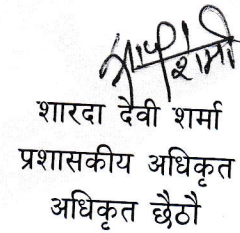 शारदा देवी शर्मा
प्रशासकीय अधिकृत
अधिकृत छैठौ